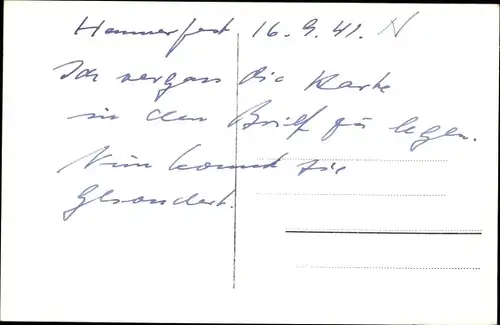 Hammerfest, 16.9.41. N
Ich vergass die Karte
in den Brief zu legen.
Nun kommt sie
gesondert.